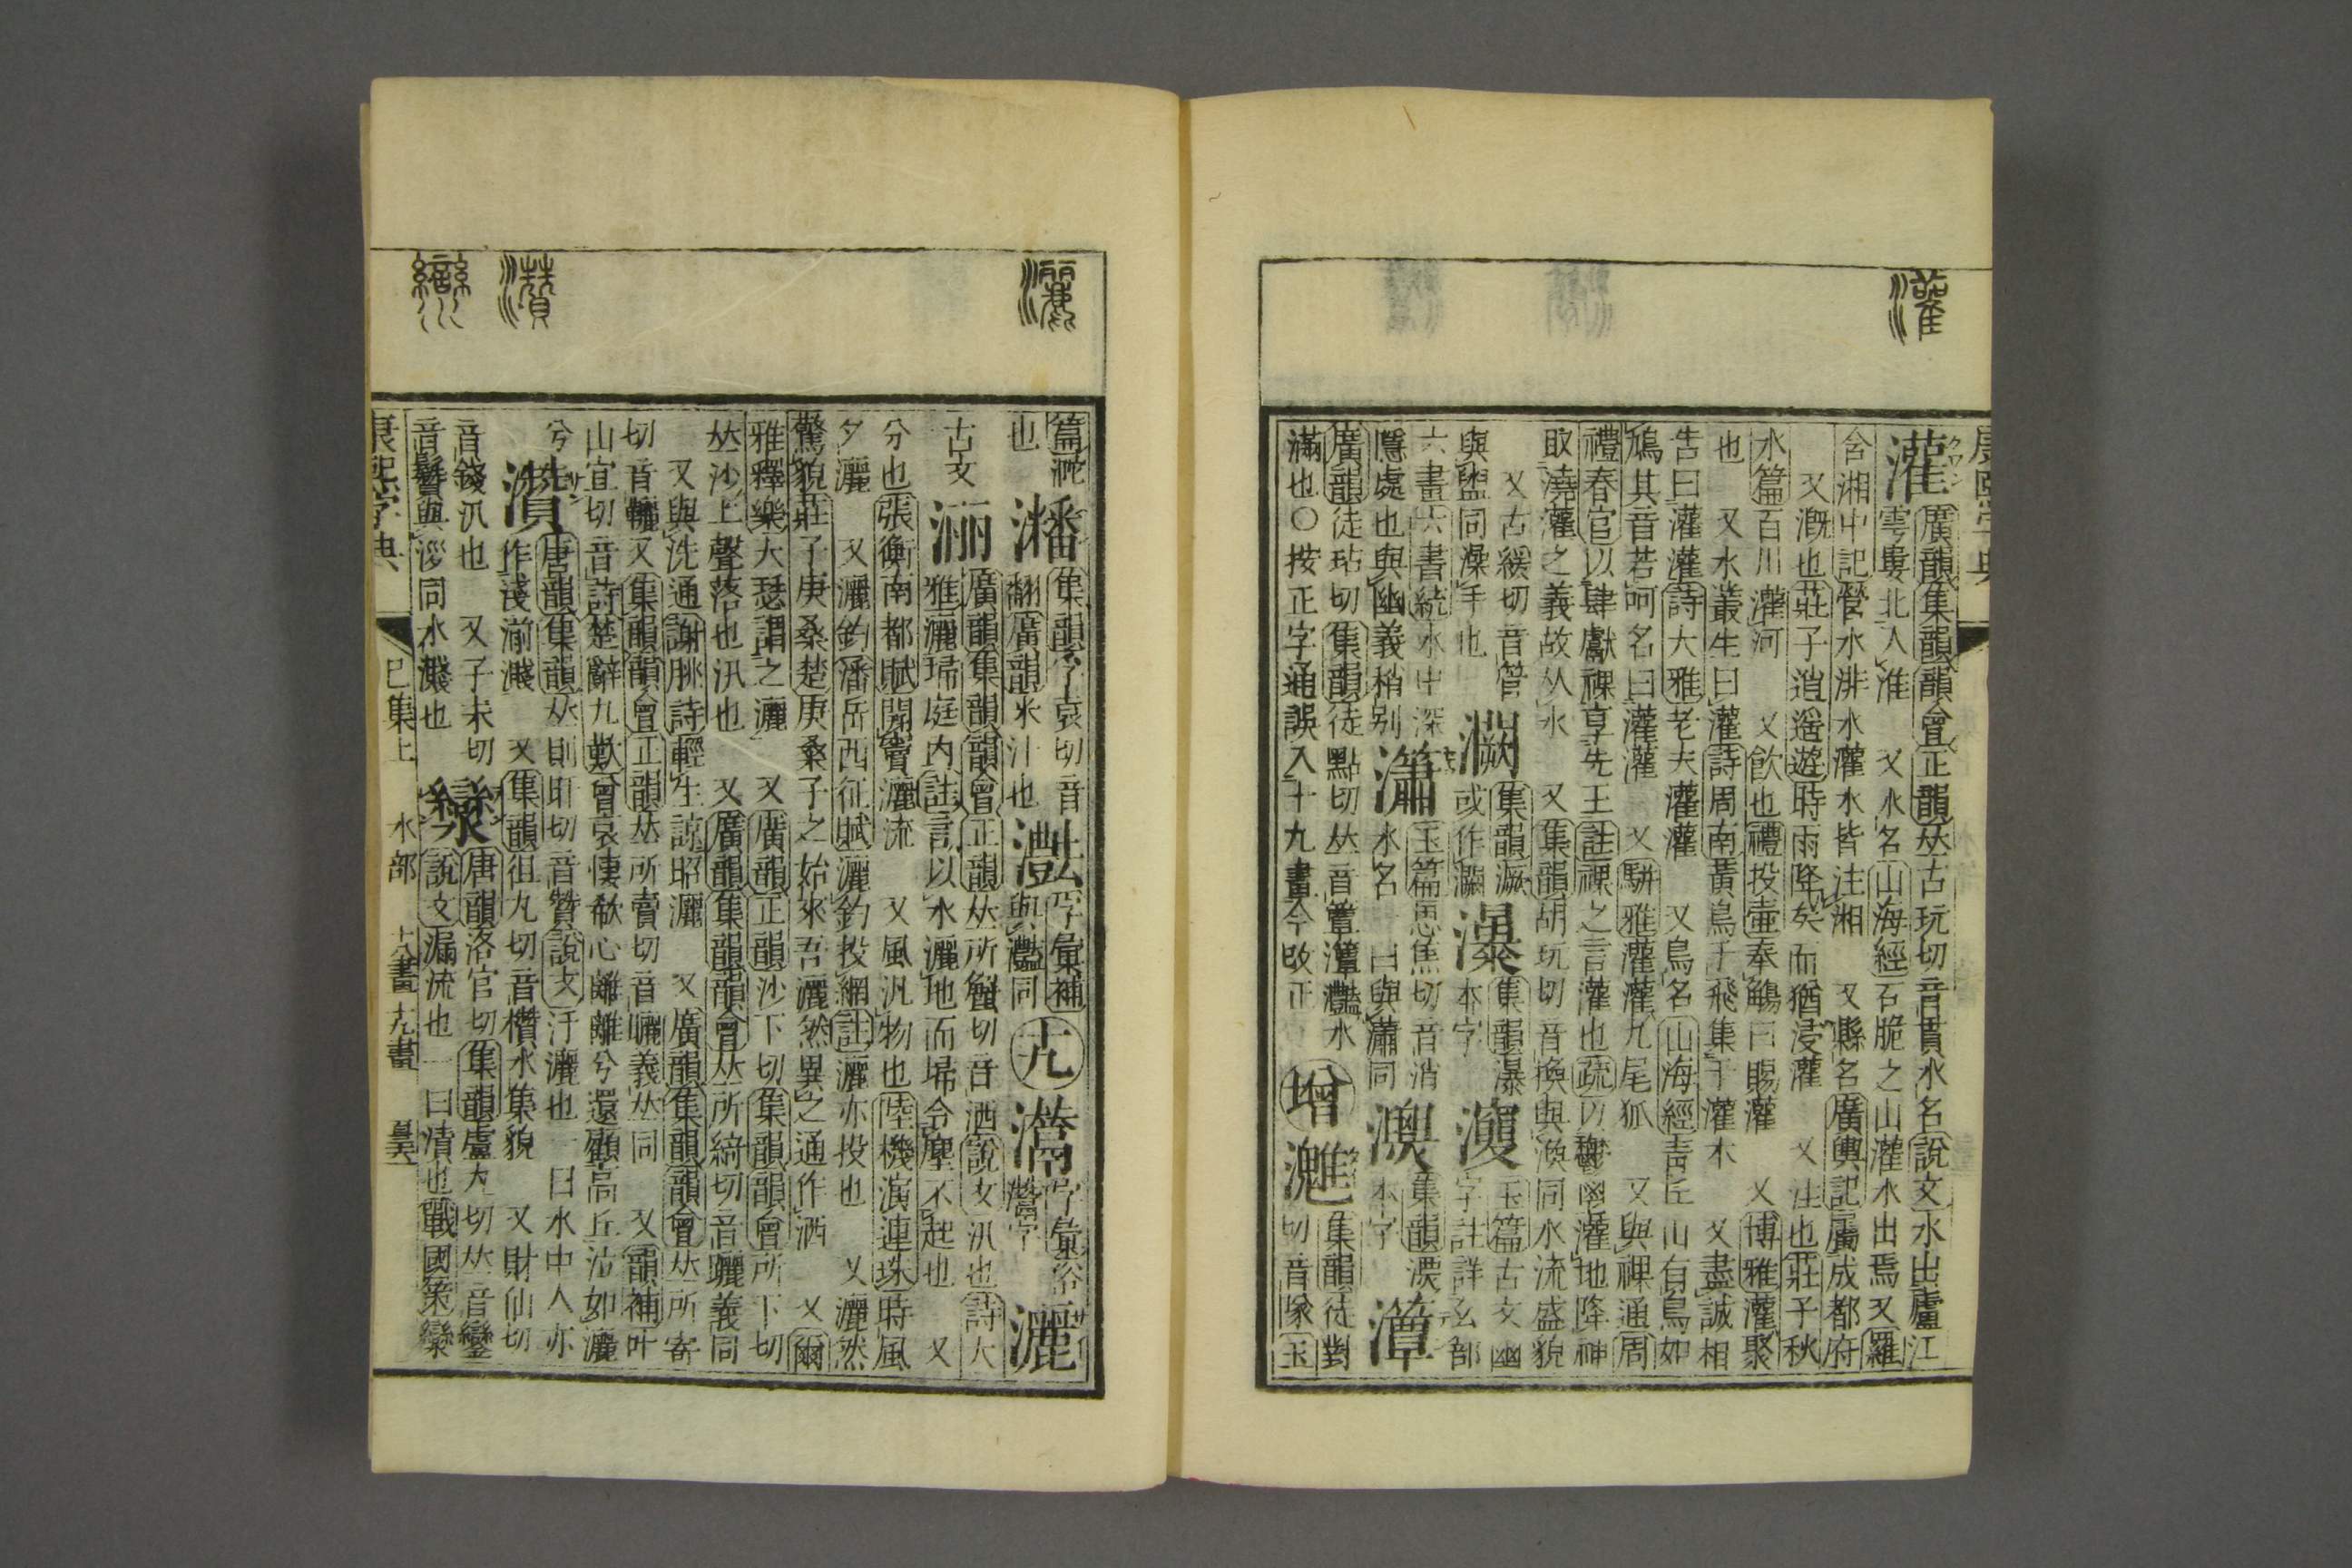 灌
康熙字典
灌 廣韻集韻韻會正韻𠀤古玩切音貫水名說文水出廬江
雩婁北入淮　又水名山海經石脆之山灌水出焉又羅
含湘中記營水洮水灌水皆注湘　又縣名廣輿記屬成都府
又漑也莊子逍遙遊時雨降矣而猶浸灌　又注也莊子秋
水篇百川灌河　又飮也禮投壺奉觴曰賜灌　又博雅灌聚
也　又水叢生曰灌詩周南黃鳥于飛集于灌木　又盡誠相
告曰灌灌詩大雅老夫灌灌　又鳥名山海經靑丘山有鳥如
鳩其音若呵名曰灌灌　又駢雅灌灌九尾狐　又與祼通周
禮春官以肆獻祼享先王註祼之言灌也疏以鬱鬯灌地降神
取澆灌之義故从水　又集韻胡玩切音換與渙同水流盛貌
又古緩切音管 集韻 集韻瀑 玉篇古文幽
與盥同澡手也 或作 本字 字註詳幺部
六書六書統水中深 玉篇思焦切音消 集韻澳
隱處也與幽義稍别 瀟 水名　一曰與瀟同 本字
廣韻徒玷切集韻徒點切𠀤音簟灩水 增 集韻徒對
滿也○按正字通誤入十九畫今改正 切音隊玉
灑
灒
灓
篇 集韻孚袁切音 字彙補 十九 字彙俗
也 翻廣韻米汁也 與灩同 營字 灑
廣韻集韻韻會正韻𠀤所蟹切音洒說文汛也詩大
古文 雅灑埽庭内註言以水灑地而埽令塵不起也　又
分也張衡南都賦開竇灑流　又風汎物也陸機演連珠時風
夕灑　又灑釣潘岳西征賦灑釣投網註灑亦投也　又灑然
驚貌莊子庚桑楚庚桑子之始來吾灑然異之通作洒　又爾
雅釋樂大瑟謂之灑　又廣韻正韻沙下切集韻韻會所下切
𠀤沙上聲落也汛也　又廣韻集韻韻會𠀤所綺切音躧義同
又與洗通謝朓詩輕生諒昭灑　又廣韻集韻韻會𠀤所寄
切音 又集韻韻會正韻𠀤所賣切音曬義𠀤同　又韻補叶
山宜切音詩楚辭九歎曾哀悽欷心離離兮還顧高丘泣如灑
兮 灒 唐韻集韻𠀤則旰切音贊說文汙灑也一曰水中人亦
作濺湔濺　又集韻徂丸切音欑水集貌　又財仙切
音錢汛也　又子末切 灓 唐韻洛官切集韻盧丸切𠀤音鑾
音鬢與 同水濺也 說文漏流也一曰漬也戰國策灓
康熙字典　巳集上　水部　十八畫　十九畫